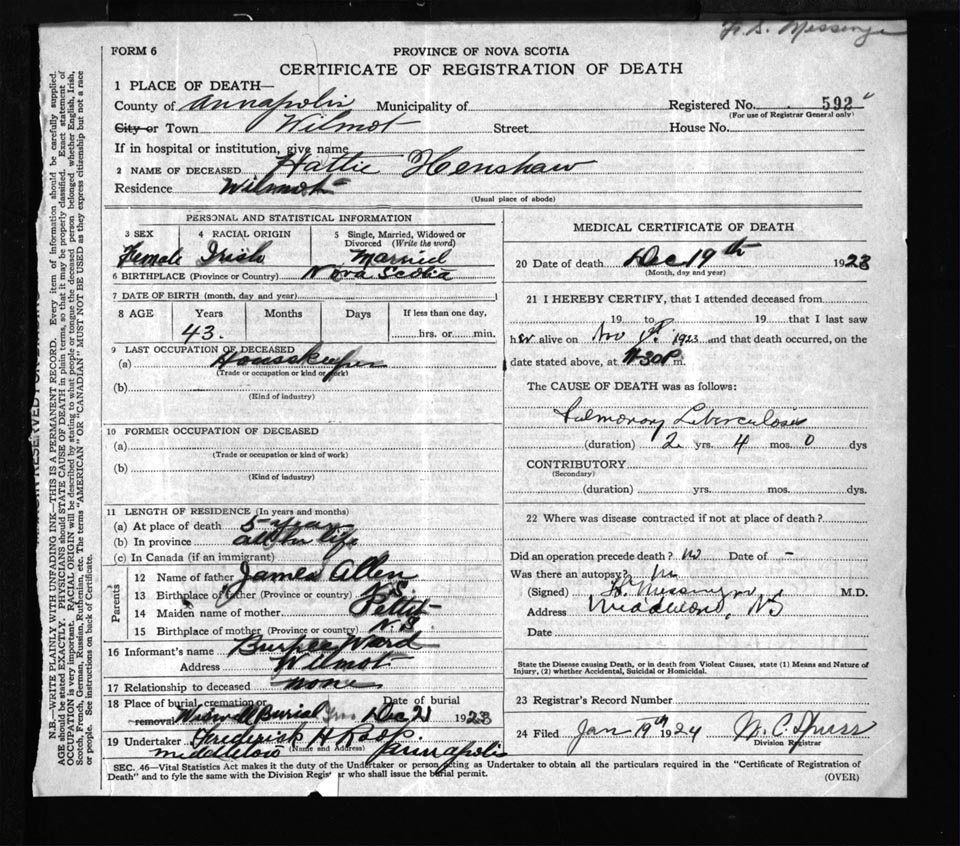 FORM 6
PROVINCE OF NOVA SCOTIA
CERTIFICATE OF REGISTRATION OF DEATH
1 PLACE OF DEATH—
County of Annapolis Municipality of Registered No. 592
(For use of Registrar General only)
City or Town Wilmot Street House No.
If in hospital or institution, give name
2 NAME OF DECEASED Hattie Henshaw
Residence Wilmot
(Usual place of abode)
PERSONAL AND STATISTICAL INFORMATION
3 SEX 4 RACIAL ORIGIN 5 Single, Married, Widowed or Divorced (Write the word)
Female Irish Married
6 BIRTHPLACE (Province or Country) Nova Scotia
7 DATE OF BIRTH (month, day and year)
8 AGE Years Months Days If less than one day,
43. hrs. or min.
9 LAST OCCUPATION OF DECEASED
(a) Housekeeper
(Trade or occupation or kind of work)
(b)
(Kind of industry)
10 FORMER OCCUPATION OF DECEASED
(a)
(Trade or occupation or kind of work)
(b)
(Kind of industry)
11 LENGTH OF RESIDENCE (In years and months)
(a) At place of death 5 years
(b) In province all her life
(c) In Canada (if an immigrant)
Parents
12 Name of father James Allen
13 Birthplace of father (Province or country) N.S.
14 Maiden name of mother Pettit
15 Birthplace of mother (Province or country) N.S.
16 Informant's name Burpee Ward
Address Wilmot
17 Relationship to deceased none
18 Place of burial, cremation or removal Burial Date of burial Dec 21 1923
19 Undertaker Frederick H
(Name and Address)
Annapolis
MEDICAL CERTIFICATE OF DEATH
20 Date of death Dec 19th 1923
(Month, day and year)
21 I HEREBY CERTIFY, that I attended deceased from
19 to 19 that I last saw
her alive on Nov 1923 and that death occurred, on the
date stated above, at 11.30P m.
The CAUSE OF DEATH was as follows:
Pulmonary Tuberculosis
(duration) 2 yrs. 4 mos. 0 dys
CONTRIBUTORY
(Secondary)
(duration) yrs. mos. dys.
22 Where was disease contracted if not at place of death?
Did an operation precede death? no Date of -
Was there an autopsy? no
(Signed) Messenger M.D.
Address Middleton, NS
Date
State the Disease causing Death, or in death from Violent Causes, state (1) Means and Nature of
Injury, (2) whether Accidental, Suicidal or Homicidal.
23 Registrar's Record Number
24 Filed Jan 19th 1924
Division Registrar
SEC. 46—Vital Statistics Act makes it the duty of the Undertaker or person acting as Undertaker to obtain all the particulars required in the "Certificate of Registration of
Death" and to fyle the same with the Division Registrar who shall issue the burial permit.
(OVER)
N.B.—WRITE PLAINLY WITH UNFADING INK—THIS IS A PERMANENT RECORD. Every item of information should be carefully supplied.
AGE should be stated EXACTLY. PHYSICIANS should STATE CAUSE OF DEATH in plain terms, so that it may be properly classified. Exact statement of
OCCUPATION is very important. RACIAL ORIGIN will be described by stating to what people or tongue the deceased person belonged, whether English, Irish,
Scotch, French, German, Russian, Ruthenian, etc. The terms "AMERICAN" OR "CANADIAN" MUST NOT BE USED as they express citizenship but not a race
or people. See instructions on back of Certificate.